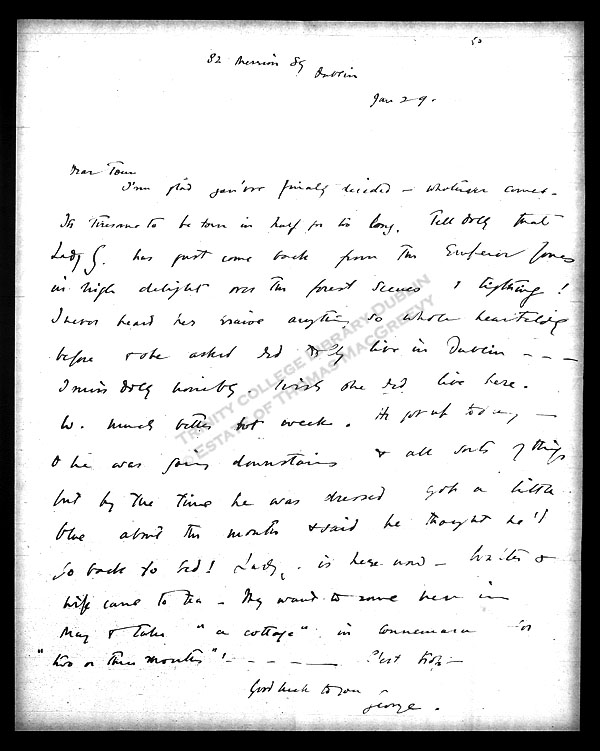 50
82 Merrion Sq
Dublin
Jan 29.
Dear Tom
I'm glad you've finally decided – whatever comes.
Its tiresome to be torn in half for too long. Tell Dolly that
Lady G. has just come back from the Emperor Jones
in high delight over the forest scenes & lighting!
I never heard her praise anything so whole heartedly
before & she asked did Dolly live in Dublin – – –
I miss Dolly horribly. Wish she did live here.
W. much better but weak. He got up today –
& he was going downstairs & all sorts of things
but by the time he was dressed got a little
blue about the mouth & said he thought he'd
go back to bed! Lady G. is here now – &
wife came to tea – They want to come here in
May & take "a cottage" in Connemara for
"two or three months"! – – – – C'est trop –
Good luck to you
George.
TRINITY COLLEGE LIBRARY DUBLIN
ESTATE OF THOMAS MACGREEVY